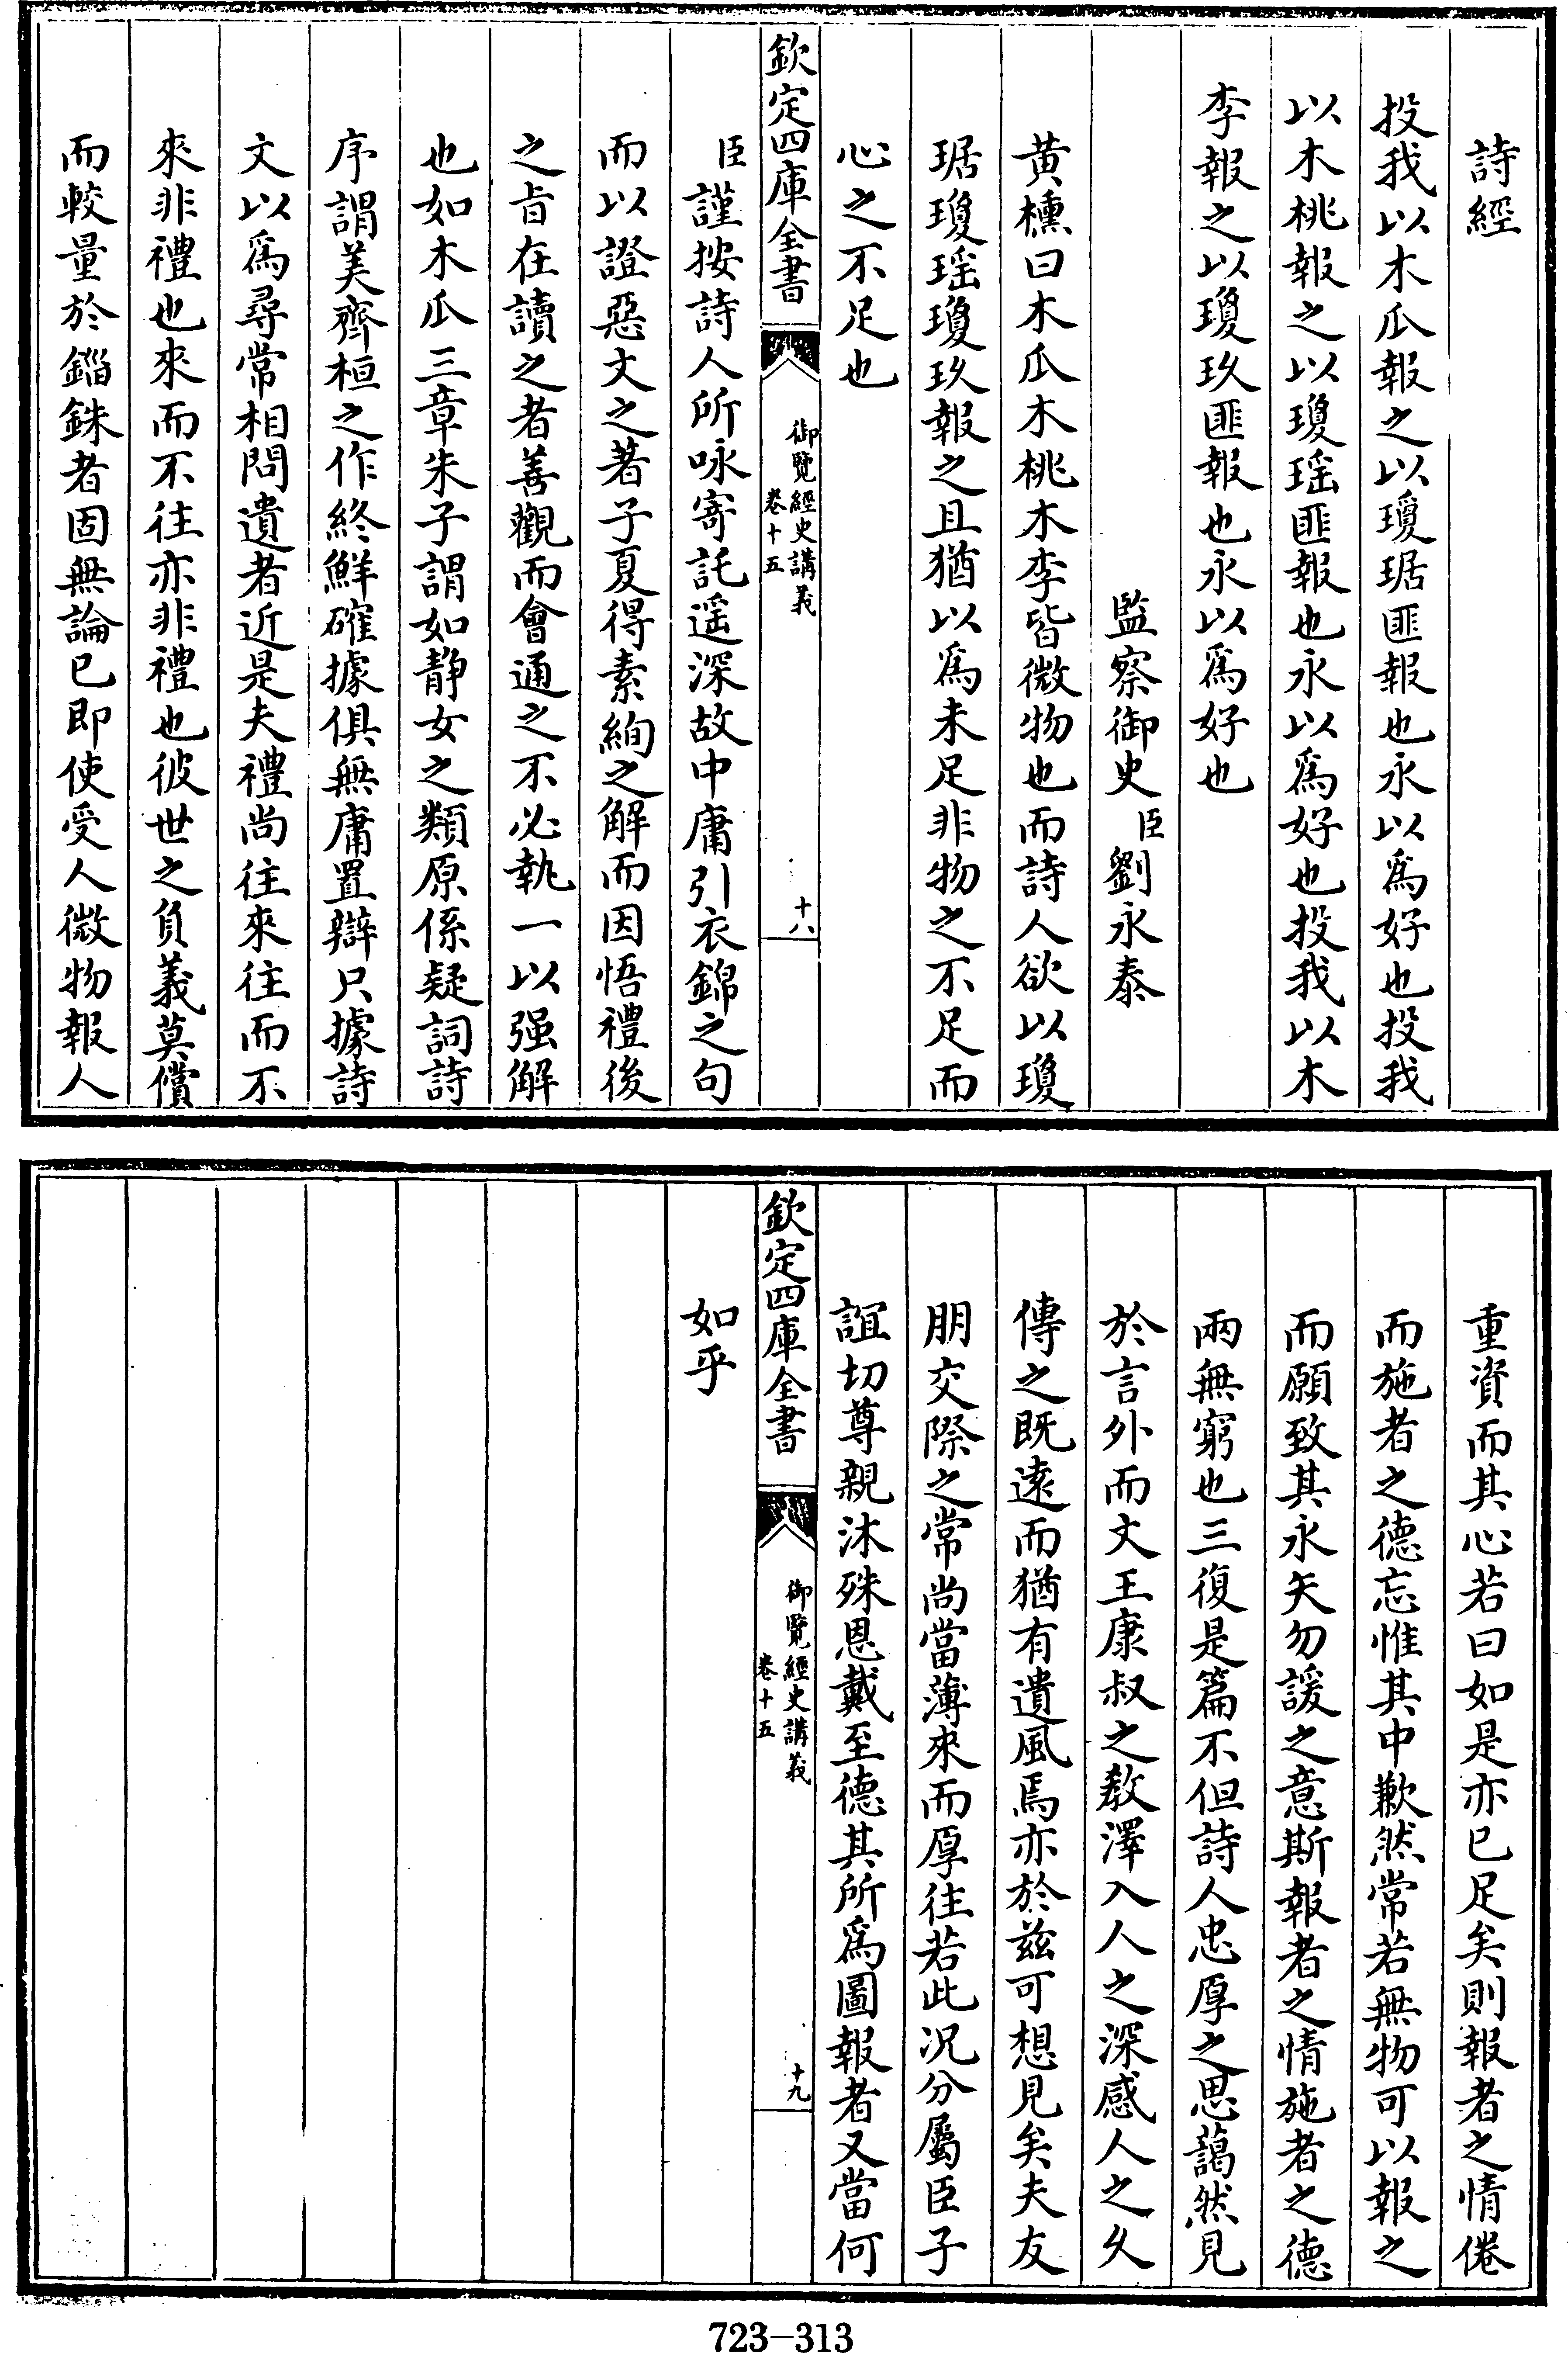 詩經
投我以木瓜報之以瓊琚匪報也永以爲好也投我
以木桃報之以瓊瑶匪報也永以爲好也投我以木
李報之以瓊玖匪報也永以爲好也
監察御史臣劉永泰
黄櫄曰木瓜木桃木李皆微物也而詩人欲以瓊
琚瓊瑶瓊玖報之且猶以爲未足非物之不足而
心之不足也
欽定四庫全書
御覽經史講義
卷十五
十八
臣謹按詩人所咏寄託遥深故中庸引衣錦之句
而以證惡文之著子夏得素絢之解而因悟禮後
之旨在讀之者善觀而會通之不必執一以强解
也如木瓜三章朱子謂如靜女之類原係疑詞詩
序謂美齊桓之作終鮮確據俱無庸置辯只據詩
文以爲尋常相問遺者近是夫禮尚往來往而不
來非禮也來而不往亦非禮也彼世之負義莫償
而較量於錙銖者固無論已即使受人微物報人
重資而其心若曰如是亦已足矣則報者之情倦
而施者之德忘惟其中歉然常若無物可以報之
而願致其永矢勿諼之意斯報者之情施者之德
兩無窮也三復是篇不但詩人忠厚之思藹然見
於言外而文王康叔之敎澤入人之深感人之久
傳之既遠而猶有遺風焉亦於兹可想見矣夫友
朋交際之常尚當薄來而厚往若此况分屬臣子
誼切尊親沐殊恩戴至德其所爲圖報者又當何
欽定四庫全書
御覽經史講義
卷十五
十九
如乎
723-313